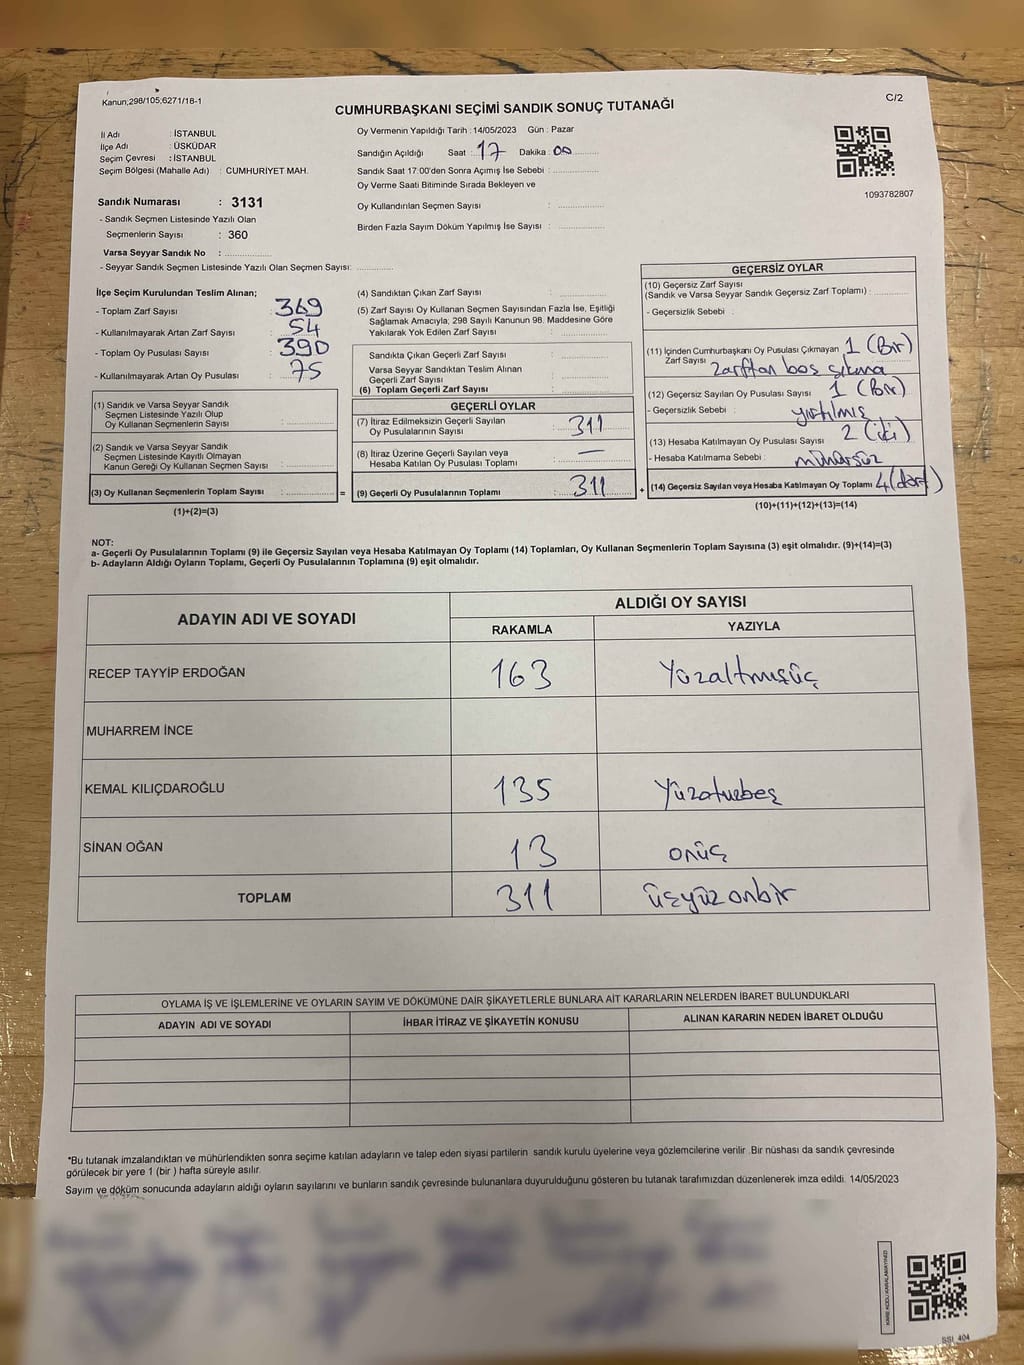 Kanun;298/105;6271/18-1
C/2
CUMHURBAŞKANI SEÇİMİ SANDIK SONUÇ TUTANAĞI
İl Adı : İSTANBUL
İlçe Adı : ÜSKÜDAR
Seçim Çevresi : İSTANBUL
Seçim Bölgesi (Mahalle Adı) : CUMHURİYET MAH.
Sandık Numarası : 3131
- Sandık Seçmen Listesinde Yazılı Olan
Seçmenlerin Sayısı : 360
Varsa Seyyar Sandık No :
- Seyyar Sandık Seçmen Listesinde Yazılı Olan Seçmen Sayısı:
Oy Vermenin Yapıldığı Tarih : 14/05/2023 Gün : Pazar
Sandığın Açıldığı Saat : 17 Dakika : 00
Sandık Saat 17:00'den Sonra Açımış İse Sebebi :
Oy Verme Saati Bitiminde Sırada Bekleyen ve
Oy Kullandırılan Seçmen Sayısı :
Birden Fazla Sayım Döküm Yapılmış İse Sayısı :
1093782807
İlçe Seçim Kurulundan Teslim Alınan;
- Toplam Zarf Sayısı : 369
- Kullanılmayarak Artan Zarf Sayısı : 54
- Toplam Oy Pusulası Sayısı : 390
- Kullanılmayarak Artan Oy Pusulası : 75
(1) Sandık ve Varsa Seyyar Sandık
Seçmen Listesinde Yazılı Olup
Oy Kullanan Seçmenlerin Sayısı :
(2) Sandık ve Varsa Seyyar Sandık
Seçmen Listesinde Kayıtlı Olmayan
Kanun Gereği Oy Kullanan Seçmen Sayısı :
(3) Oy Kullanan Seçmenlerin Toplam Sayısı : =
(1)+(2)=(3)
(4) Sandıktan Çıkan Zarf Sayısı :
(5) Zarf Sayısı Oy Kullanan Seçmen Sayısından Fazla İse, Eşitliği
Sağlamak Amacıyla; 298 Sayılı Kanunun 98. Maddesine Göre
Yakılarak Yok Edilen Zarf Sayısı :
Sandıkta Çıkan Geçerli Zarf Sayısı :
Varsa Seyyar Sandıktan Teslim Alınan
Geçerli Zarf Sayısı :
(6) Toplam Geçerli Zarf Sayısı :
GEÇERLİ OYLAR
(7) İtiraz Edilmeksizin Geçerli Sayılan
Oy Pusulalarının Sayısı : 311
(8) İtiraz Üzerine Geçerli Sayılan veya
Hesaba Katılan Oy Pusulası Toplamı : —
(9) Geçerli Oy Pusulalarının Toplamı : 311 +
GEÇERSİZ OYLAR
(10) Geçersiz Zarf Sayısı
(Sandık ve Varsa Seyyar Sandık Geçersiz Zarf Toplamı) :
- Geçersizlik Sebebi :
(11) İçinden Cumhurbaşkanı Oy Pusulası Çıkmayan 1 (Bir)
Zarf Sayısı : zarftan boş çıkma
(12) Geçersiz Sayılan Oy Pusulası Sayısı : 1 (Bir)
- Geçersizlik Sebebi : yırtılmış
(13) Hesaba Katılmayan Oy Pusulası Sayısı : 2 (iki)
- Hesaba Katılmama Sebebi : mühürsüz
(14) Geçersiz Sayılan veya Hesaba Katılmayan Oy Toplamı : 4 (dört)
(10)+(11)+(12)+(13)=(14)
NOT:
a- Geçerli Oy Pusulalarının Toplamı (9) ile Geçersiz Sayılan veya Hesaba Katılmayan Oy Toplamı (14) Toplamları, Oy Kullanan Seçmenlerin Toplam Sayısına (3) eşit olmalıdır. (9)+(14)=(3)
b- Adayların Aldığı Oyların Toplamı, Geçerli Oy Pusulalarının Toplamına (9) eşit olmalıdır.
ADAYIN ADI VE SOYADI
ALDIĞI OY SAYISI
RAKAMLA YAZIYLA
RECEP TAYYİP ERDOĞAN 163 Yüzaltmışüç
MUHARREM İNCE
KEMAL KILIÇDAROĞLU 135 Yüzotuzbeş
SİNAN OĞAN 13 onüç
TOPLAM 311 üçyüzonbir
OYLAMA İŞ VE İŞLEMLERİNE VE OYLARIN SAYIM VE DÖKÜMÜNE DAİR ŞİKAYETLERLE BUNLARA AİT KARARLARIN NELERDEN İBARET BULUNDUKLARI
ADAYIN ADI VE SOYADI İHBAR İTİRAZ VE ŞİKAYETİN KONUSU ALINAN KARARIN NEDEN İBARET OLDUĞU
*Bu tutanak imzalandıktan ve mühürlendikten sonra seçime katılan adayların ve talep eden siyasi partilerin sandık kurulu üyelerine veya gözlemcilerine verilir .Bir nüshası da sandık çevresinde
görülecek bir yere 1 (bir ) hafta süreyle asılır.
Sayım ve döküm sonucunda adayların aldığı oyların sayılarını ve bunların sandık çevresinde bulunanlara duyurulduğunu gösteren bu tutanak tarafımızdan düzenlenerek imza edildi. 14/05/2023
SSI_404